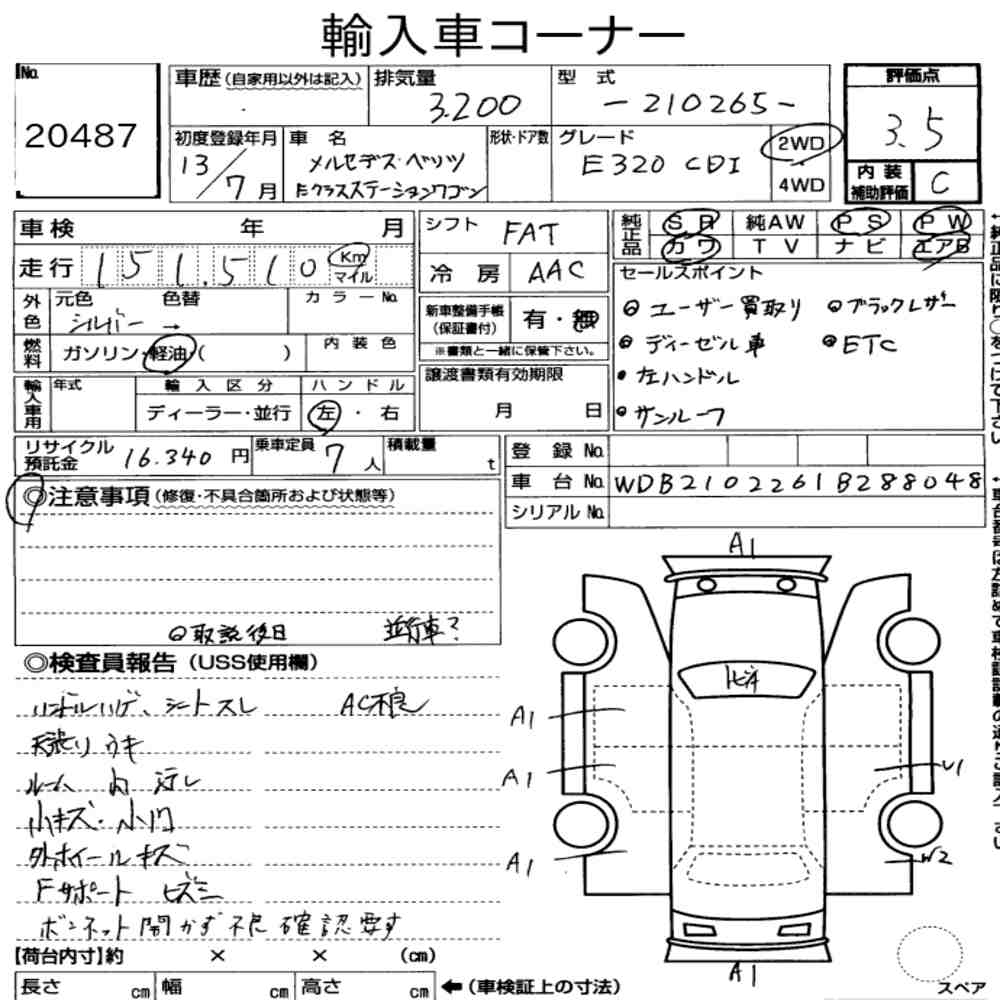 輸入車コーナー
No.
20487
車歴(自家用以外は記入)
排気量
3.200
型 式
-210265-
評価点
3.5
初度登録年月
13/7月
車 名
メルセデス・ベンツ
Eクラスステーションワゴン
形状・ドア数
グレード
E320 CDI
2WD
4WD
内装
補助評価
C
車検 年 月
走行 151.510 Km
マイル
シフト FAT
冷房 AAC
純正品
SR 純AW PS PW
カワ TV ナビ エアB
セールスポイント
ユーザー買取り
ブラックレザー
ディーゼル車
ETC
左ハンドル
サンルーフ
外色
元色 色替 カラーNo.
シルバー→
燃料
ガソリン・軽油・( )
内装色
新車整備手帳
(保証書付)
有・無
※書類と一緒に保管下さい。
輸入車用
年式
輸入区分
ディーラー・並行
ハンドル
左・右
譲渡書類有効期限
月 日
リサイクル
預託金
16.340 円
乗車定員
7人
積載量
t
登録No.
車台No. WDB2102261B288048
シリアルNo.
◎注意事項(修復・不具合箇所および状態等)
取説後日 並行車?
◎検査員報告(USS使用欄)
ハンドルハゲ、シートスレ AC不良
天張りウキ
ルーム内汚レ
小キズ・小凹
外ホイールキズ
Fサポートヒズミ
ボンネット開かず不良確認要す
A1
A1
A1
A1
U1
W2
A1
スペア
【荷台内寸】約 × × (cm)
長さ cm 幅 cm 高さ cm ←(車検証上の寸法)